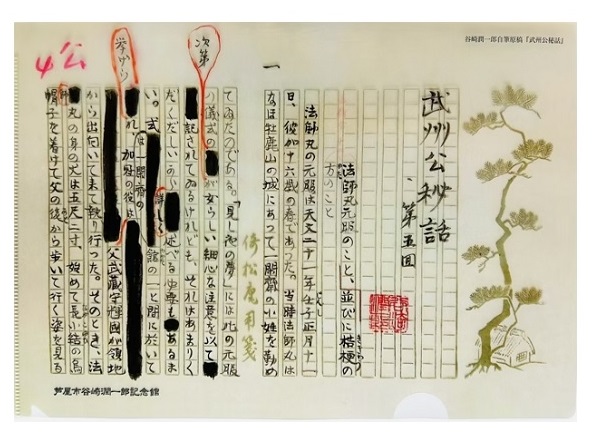 谷崎潤一郎自筆原稿『武州公秘話』
武州公秘話
第五回
法師丸元服のこと、並びに桔梗の
方のこと
一
法師丸の元服は天文二十一年壬子正月十一
日、彼が十六歳の春であつた。当時法師丸は
なほ牡鹿山の城にあつて一閑斎の小姓を勤め
てゐたのである。「見し夜の夢」には此の元服
の儀式の次第が女らしい細心な注意を以て
記されてゐるけれども、それはあまりく
だくだしいから詳しく述べる必要もあるま
い。式は一閑斎の館の一と間に於いて
挙げられ加冠の役は父武蔵守輝國が領地
から出向いて来て執り行つた。そのとき、法
師丸の身の丈は五尺二寸、始めて長小結の烏
帽子を着けて父の後から歩いて行く姿を見る
公4
倚松庵用箋
芦屋市谷崎潤一郎記念館